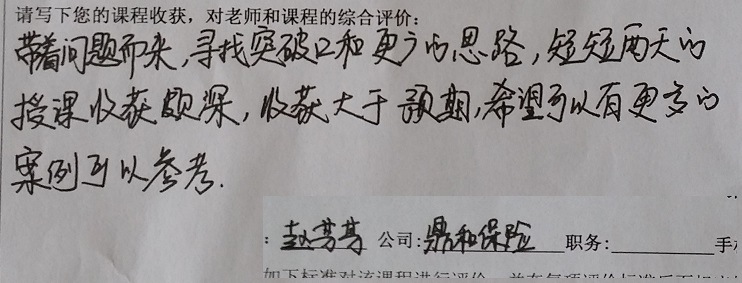 请写下您的课程收获，对老师和课程的综合评价：
带着问题而来,寻找突破口和更广的思路,短短两天的
授课收获颇深,收获大于预期,希望可以有更多的
案例可以参考.
：赵芳芳 公司:鼎和保险 职务: 手
如下标准对该课程进行评价